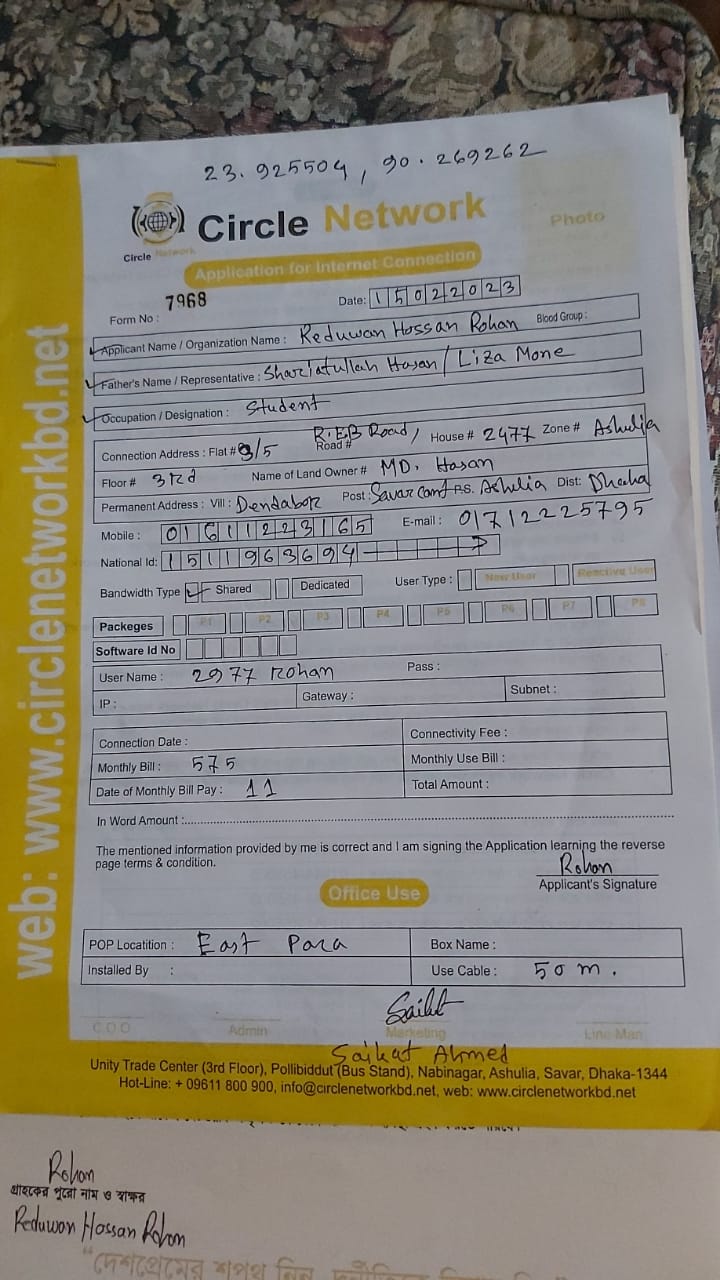 23.925504, 90.269262
Circle Network
Circle Network
Photo
Application for Internet Connection
Form No : 7968
Date: 15022023
Applicant Name / Organization Name : Reduwan Hossan Rohan Blood Group :
Father's Name / Representative : Shariatullah Hasan / Liza Mone
Occupation / Designation : Student
Connection Address : Flat # /5 Road # R.EB Road, House # 2477 Zone # Ashulia
Floor # 3rd Name of Land Owner # MD. Hasan
Permanent Address : Vill : Dendabor Post : Savar Cant P.S. Ashulia Dist: Dhaka
Mobile : 01611223165 E-mail : 01712225795
National Id: 1511963694
Bandwidth Type Shared Dedicated User Type : New User Reactive User
Packeges P1 P2 P3 P4 P5 P6 P7 P8
Software Id No
User Name : 2977 Rohan Pass :
IP : Gateway : Subnet :
Connection Date : Connectivity Fee :
Monthly Bill : 575 Monthly Use Bill :
Date of Monthly Bill Pay : 11 Total Amount :
In Word Amount :
The mentioned information provided by me is correct and I am signing the Application learning the reverse
page terms & condition.
Rohan
Applicant's Signature
Office Use
POP Locatition : East Para Box Name :
Installed By : Use Cable : 50 m.
Saikat
C.O.O Admin Marketing Line Man
Saikat Ahmed
Unity Trade Center (3rd Floor), Pollibiddut (Bus Stand), Nabinagar, Ashulia, Savar, Dhaka-1344
Hot-Line: + 09611 800 900, info@circlenetworkbd.net, web: www.circlenetworkbd.net
web: www.circlenetworkbd.net
Rohan
গ্রাহকের পুরো নাম ও স্বাক্ষর
Reduwan Hossan Rohan
"দেশপ্রেমের শপথ নিন,